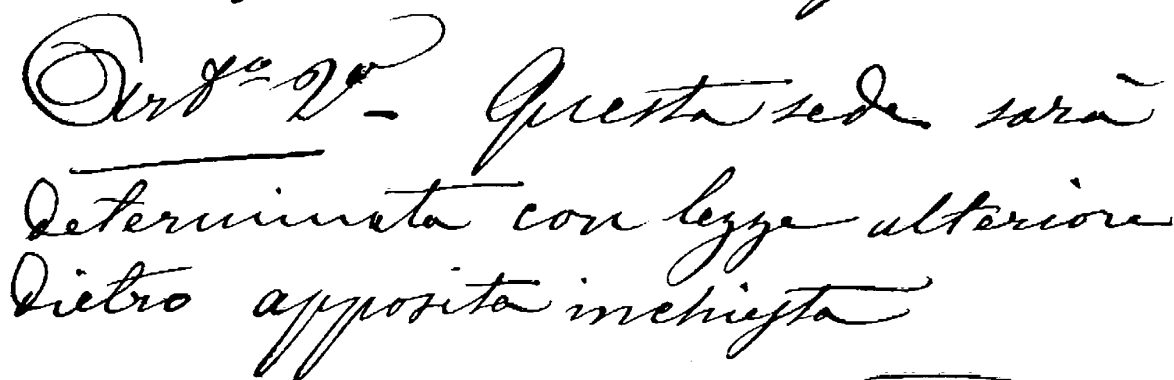 Art.º 2º - Questa sede sarà
determinata con legge ulteriore
dietro apposita inchiesta